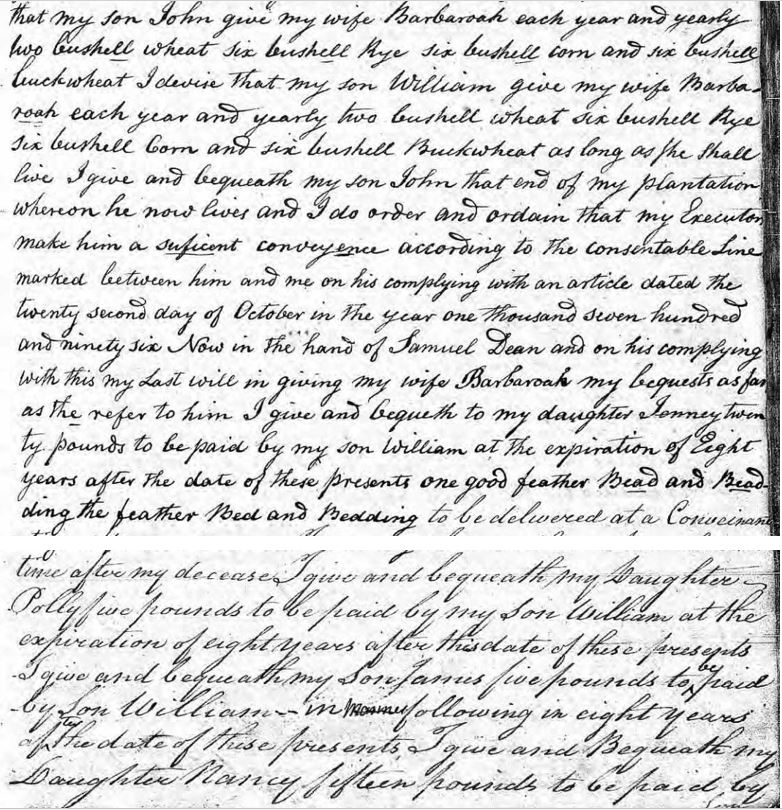 that my son John give my wife Barbaroah each year and yearly
two bushell wheat six bushell Rye six bushell corn and six bushell
buckwheat I devise that my son William give my wife Barba-
roah each year and yearly two bushell wheat six bushell Rye
six bushell Corn and six bushell Buckwheat as long as she shall
live I give and bequeath my son John that end of my plantation
whereon he now lives and I do order and ordain that my Executors
make him a suficent conveyence according to the consentable Line
marked between him and me on his complying with an article dated the
twenty second day of October in the year one thousand seven hundred
and ninety six Now in the hand of Samuel Dean and on his complying
with this my Last will in giving my wife Barbaroah my bequests as far
as the refer to him I give and bequeth to my daughter Jenney twen
ty pounds to be paid by my son William at the expiration of Eight
years after the date of these presents one good feather Bead and Bead-
ding the feather Bed and Bedding to be delivered at a Conveinant
time after my decease I give and bequeath my Daughter
Polly five pounds to be paid by my Son William at the
expiration of eight years after this date of these presents
I give and bequeath my Son James five pounds to by paid
by Son William - in following in eight years
after the date of these presents I give and Bequeath my
Daughter Nancy fifteen pounds to be paid by